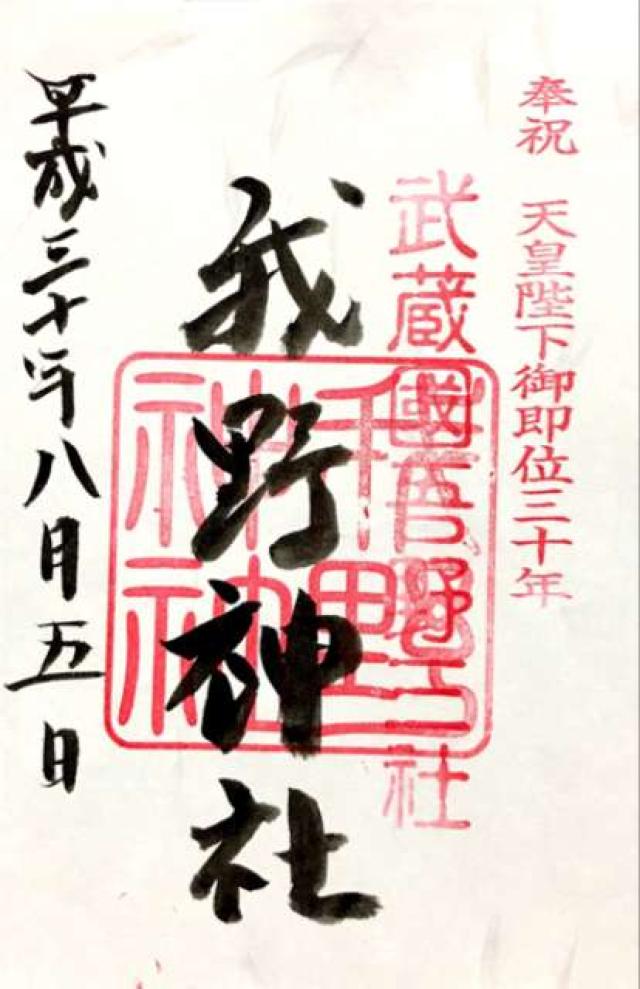 奉祝 天皇陛下御即位三十年
武蔵國吾野
社
我野神社
平成三十年八月五日